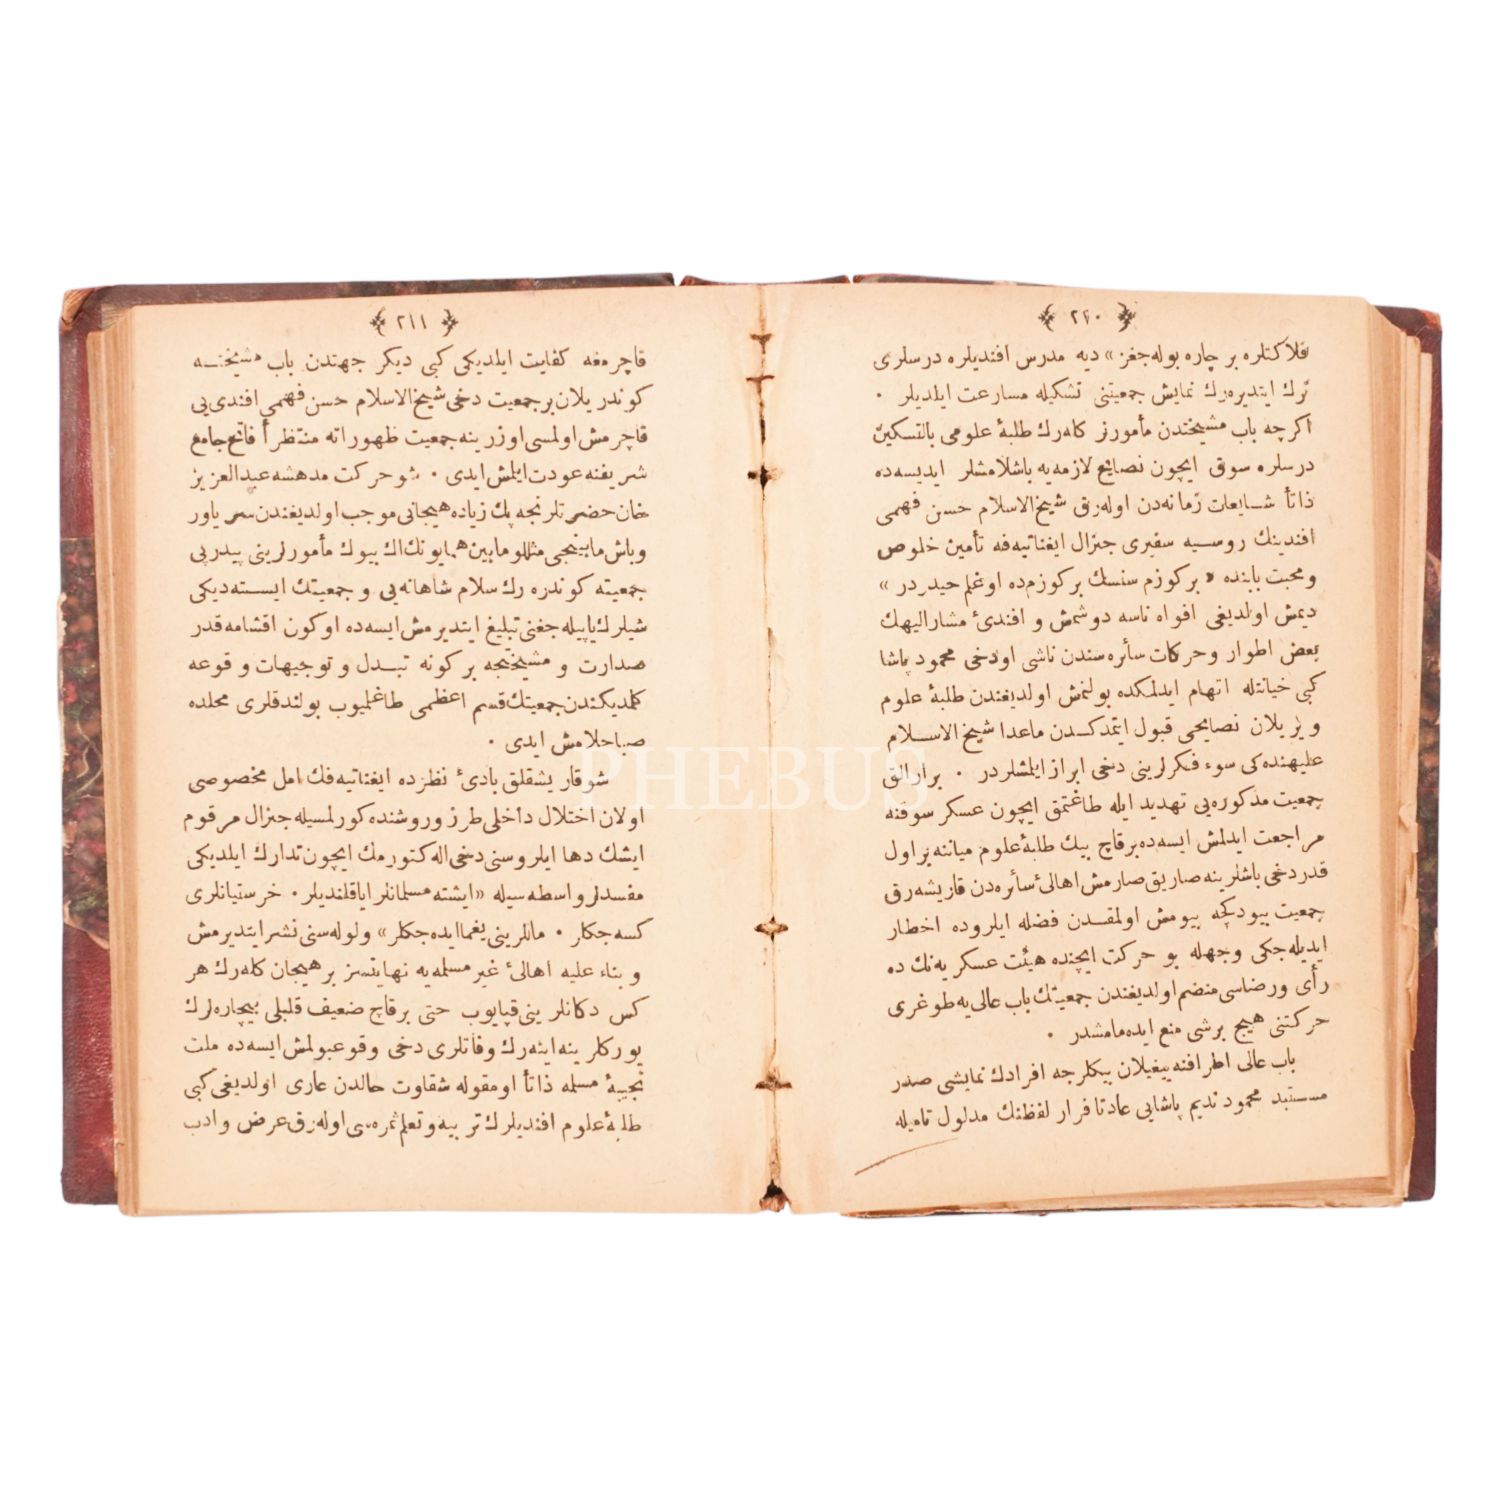 ٢١٠
فلاكتلره بر چاره بوله جغز» ديه مدرس افنديلره درسلرى
ترك ايتديره رك نمايش جمعيتنى تشكيله مسارعت ايلديلر ٠
اكرچه باب مشيختدن مأمورلر كله رك طلبهٔ علومى بالتسكين
درسلره سوق ايچون نصايح لازمه يه باشلامشلر ايديسه ده
ذاتاً شايعات زمانه دن اوله رق شيخ الاسلام حسن فهمى
افندينك روسيه سفيرى جنرال ايغناتيه فه تأمين خلوص
ومحبت بابنده «بر كوزم سنسك بر كوزم ده اوغلم حيدر در»
ديمش اولديغى افواه ناسه دوشمش و افندئ مشار اليهك
بعض اطوار وحركات سائره سندن ناشى اودخى محمود پاشا
كبى خيانتله اتهام ايدلمكده بولنمش اولديغندن طلبهٔ علوم
ويريلان نصايحى قبول ايتمدكدن ماعدا شيخ الاسلام
عليهنده كى سوء فكرلرينى دخى ابراز ايلمشلردر ٠ بر ارالق
جمعيت مذكوره يى تهديد ايله طاغتمق ايچون عسكر سوقنه
مراجعت ايدلمش ايسه ده بر قاچ بيك طلبهٔ علوم ميانه بر اول
قدر دخى باشلرينه صاريق صارمش اهالئ سائره دن قاريشه رق
جمعيت بيودكجه بيومش اولمقدن فضله ايلروده اخطار
ايديله جكى وجهله بو حركت ايچنده هيئت عسكريه نك ده
رأى ورضاسى منضم اولديغندن جمعيتك باب عالى يه طوغرى
حركتنى هيچ برشى منع ايده مامشدر ٠
باب عالى اطرافنه ييغيلان بيكلرجه افرادك نمايشى صدر
مستبد محمود نديم پاشايى عادتا فرار لفظنك مدلول تاميله
٢١١
قاچرمغه كفايت ايلديكى كبى ديكر جهتدن باب مشيخته
كوندريلان بر جمعيت دخى شيخ الاسلام حسن فهمى افندى يى
قاچرمش اولمسى اوزرينه جمعيت ظهوراته منتظراً فاتح جامع
شريفنه عودت ايلمش ايدى ٠ شو حركت مدهشه عبد العزيز
خان حضرتلرنجه پك زياده هيجانى موجب اولديغندن سر ياور
وباش مابينجى مثللو مابين همايونك اك بيوك مأمورلرينى پيدرپى
جمعيته كوندره رك سلام شاهانه يى و جمعيتك ايسته ديكى
شيلرك ياپيله جغنى تبليغ ايتديرمش ايسه ده او كون اقشامه قدر
صدارت و مشيختجه بر كونه تبدل و توجيهات وقوعه
كلمديكندن جمعيتك قسم اعظمى طاغلميوب بولندقلرى محلده
صباحلامش ايدى ٠
شو قاريشقلق بادئ نظرده ايغناتيه فك امل مخصوصى
اولان اختلال داخلى طرز وروشنده كورلمسيله جنرال مرقوم
ايشك دها ايلروسنى دخى اله كتورمك ايچون تدارك ايلديكى
مفسدلر واسطه سيله «ايشته مسلمانلر اياقلنديلر ٠ خرستيانلرى
كسه جكلر ٠ ماللرينى يغما ايده جكلر» ولوله سنى نشر ايتديرمش
و بناء عليه اهالئ غير مسلمه يه نهايتسز بر هيجان كله رك هر
كس دكانلرينى قپايوب حتى بر قاچ ضعيف قلبلى بيچاره لرك
يوركلرينه اينه رك وفاتلرى دخى وقوعبولمش ايسه ده ملت
نجيبهٔ مسلمه ذاتاً اومقوله شقاوت حالدن عارى اولديغى كبى
طلبهٔ علوم افنديلرك تربيه وتعلم ثمره سى اوله رق عرض وادب
PHEBUS